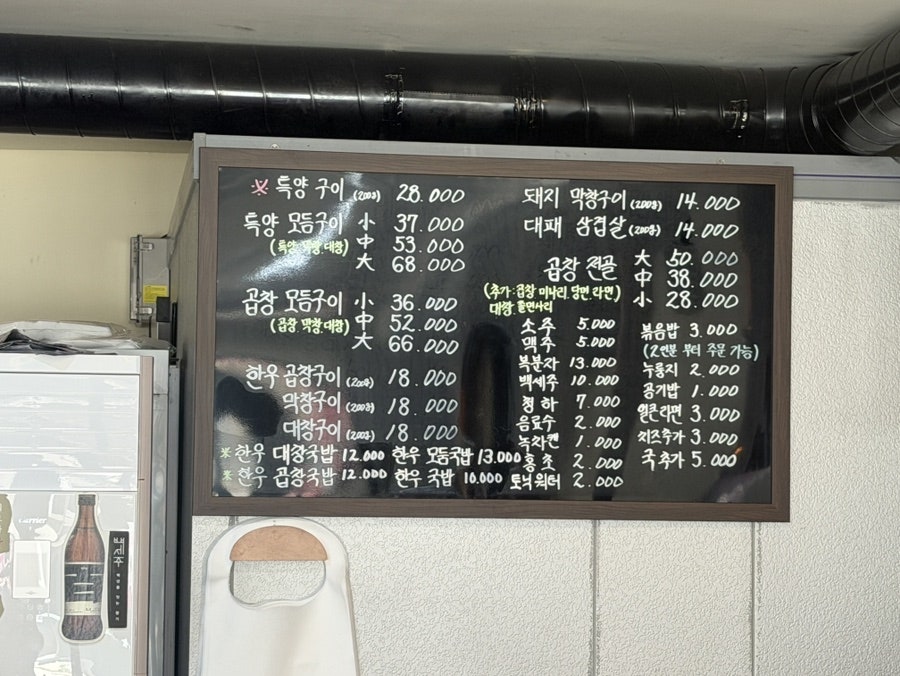 ※ 특양 구이 (200g) 28.000
특양 모듬구이 小 37.000
(특양. 막창. 대창) 中 53.000
大 68.000
곱창 모듬구이 小 36.000
(곱창. 막창. 대창) 中 52.000
大 66.000
한우 곱창구이 (200g) 18.000
막창구이 (200g) 18.000
대창구이 (200g) 18.000
※ 한우 대창국밥 12.000 한우 모듬국밥 13.000
※ 한우 곱창국밥 12.000 한우 국밥 10.000
돼지 막창구이 (200g) 14.000
대패 삼겹살 (200g) 14.000
곱창 전골 大 50.000
中 38.000
(추가: 곱창 미나리. 당면. 라면) 小 28.000
대창. 쫄면사리
소주 5.000
맥주 5.000
복분자 13.000
백세주 10.000
청하 7.000
음료수 2.000
녹차캔 1.000
홍초 2.000
토닉워터 2.000
볶음밥 3.000
(2인분 부터 주문 가능)
누룽지 2.000
공기밥 1.000
얼큰라면 3.000
치즈추가 3.000
국추가 5.000
Carrier
백세주